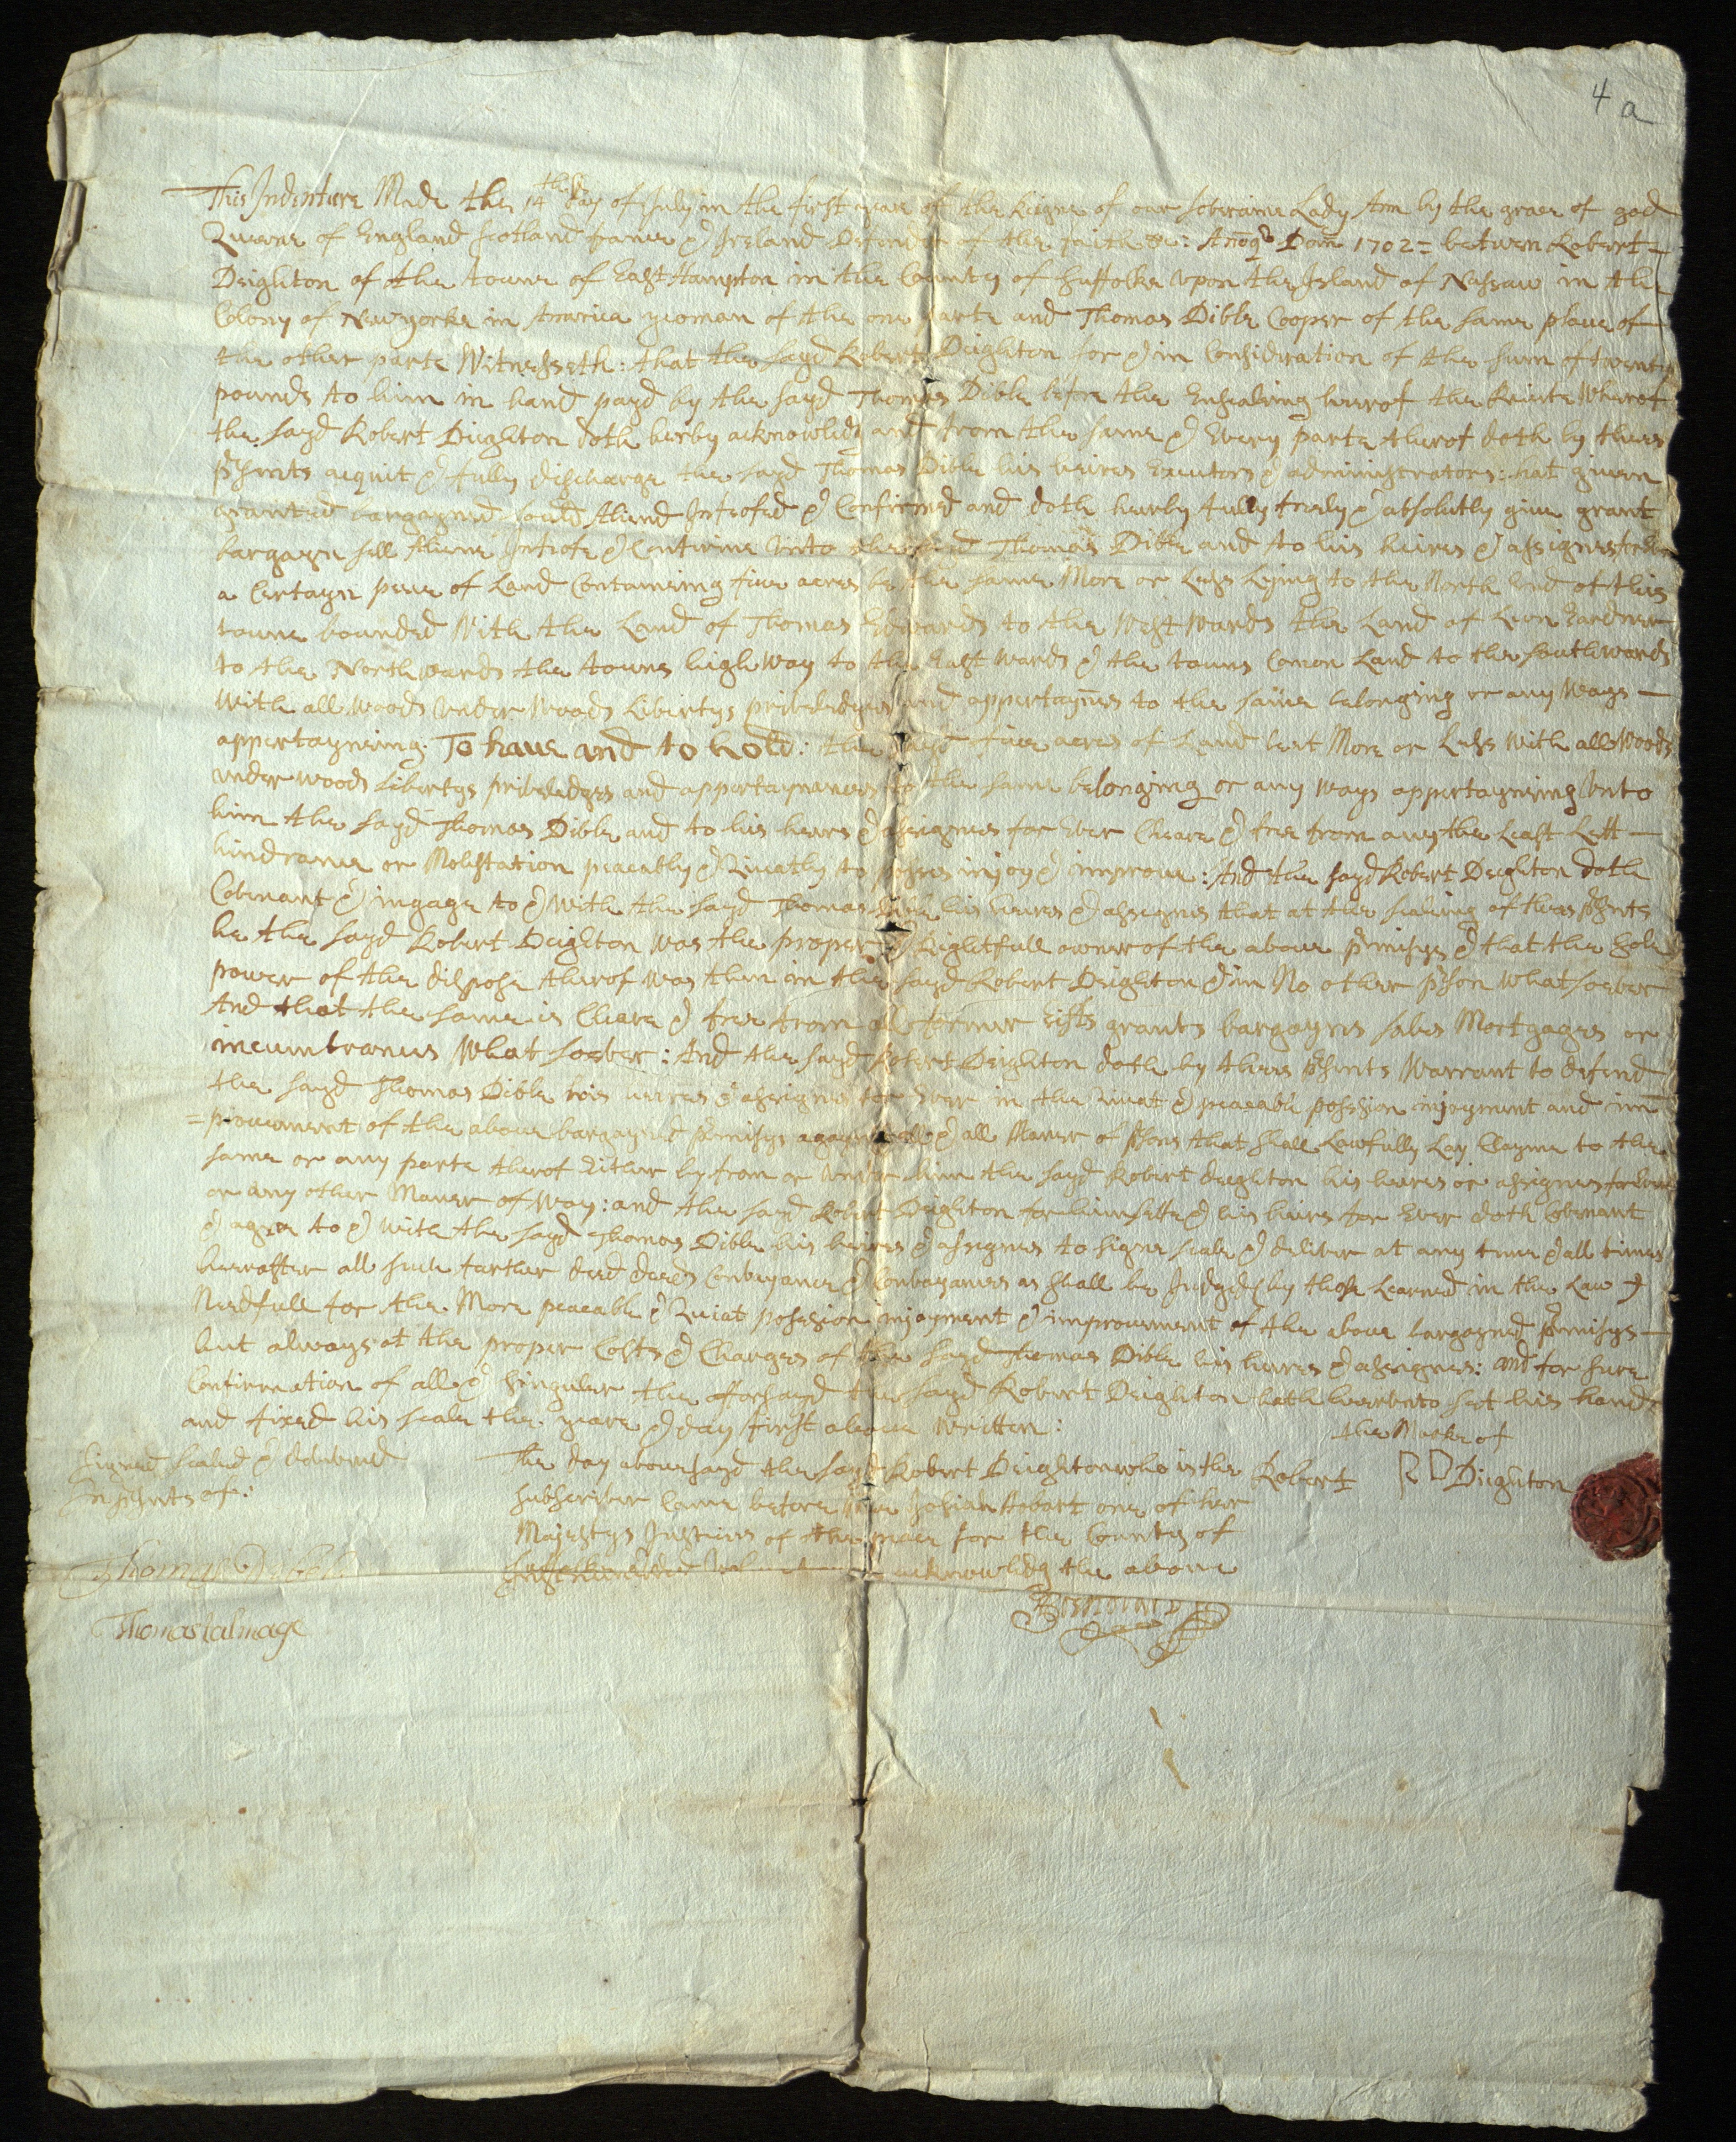 4 a
This Indenture Made the 14th day of July in the first yeare of the Reigne of our soveraine Lady Ann by the grace of god
Queene of England Scotland france & Ireland Defender of the faith &c: Anoqe Dom 1702 = betwen Robert =
Deighton of the towne of East Hampton in the County of Suffolke Vpon the Island of Nassaw in the
Colony of New yorke in America yeoman of the one parte and Thomas Dible Cooper of the same place of
the other parte Witnesseth: that the sayd Robert Dieghton for & in Consideration of the sum of twenty
pounds to him in hand payd by the sayd Thomas Dible before the Ensealeing hereof the Receite Wherof
the sayd Robert Dieghton doth herby acknowlidg and from the same & Every parte therof doth by thees
prsents acquit & fully discharge the sayd Thomas Dible his heires Executors & administrators: hat given
granted bargayned sould Aliend Infeofed & Confirmed and doth heerby fully freely & absolutly give grant
bargayn sell Aliene Infeofe & Confirme Vnto the sayd Thomas Dible and to his heires & assignes for Ever
a Certayn peece of Land Contaneing five acres be the same More or Less Lying to the North End of this
towne bounded With the Land of Thomas Edwards to the West wards the Land of Lion Gardner
to the North wards the towns high Way to the East wards & the towns Comon Land to the southwards
With all woods Vnder Woods Libertys priveledges and appertaynces to the same belonging or any Ways —
appertayneing. To have and to hold: the sayd five acres of Land be it More or Less With all Woods
vnder woods Libertys priveledges and appertaynances to the same belonging or any ways appertayneing Vnto
him the sayd Thomas Dible and to his heirs & assignes for Ever Cleare & free from any the Least Lett —
hindrance or Molestation peacebly & Quietly to posses injoy & improve: And the sayd Robert Deighton doth
Covenant & ingage to & with the sayd Thomas Dible his heires & assignes that at the sealing of thees prsents
he the sayd Robert Deighton was the proper & Rightfull owner of the above prmisys & that the Sole
power of the dispose therof was then in the sayd Robert Deighton & in No other prson what soever
And that the same is Cleare & free from all former Gifts grants bargayns sales Mortgages or
incumbrances What soever: And the sayd Robert Deighton doth by thees prsents Warrant to defend
the sayd Thomas Dible his heires & assignes for Ever in the Quiat & peaceable posesion injoyment and im
= provement of the above bargayned prmisys agaynst all & all Maner of prsons that shall Lawfully Lay Clayme to the
same or any parte therof Either by from or Vnder him the sayd Robert dieghton his heires or assignes for Ever
or any other Maner of Way: and the sayd Robert Deighton for himselfe & his heires for Ever doth Covenant
& agree to & with the sayd Thomas Dible his heires & assignes to signe seale & deliver at any time & all times
hereafter all such farther deed deeds Conveyance & Conveyances as shall be Judged by those Learned in the Law
Needfull for the More peaceable & Quiat posession injoyment & improvement of the above bargayned prmisys —
but always at the proper Costs & Charges of the sayd Thomas Dible his heires & assignes: and for sure
Confirmation of all & singuler the afforsayd the sayd Robert Deighton hath heervnto set his hand
and fixed his seale the yeare & day first above Written:
Signed sealed & delivered
In prsents of:
Thomas Talmage
The day abovesayd the sayd Robert Deighton who is the
subscriber Came before Me Josiah Hobart one of her
Majestys Justices of the peace for the County of
acknowlidg the above
the Marke of
Robert R D Dieghton